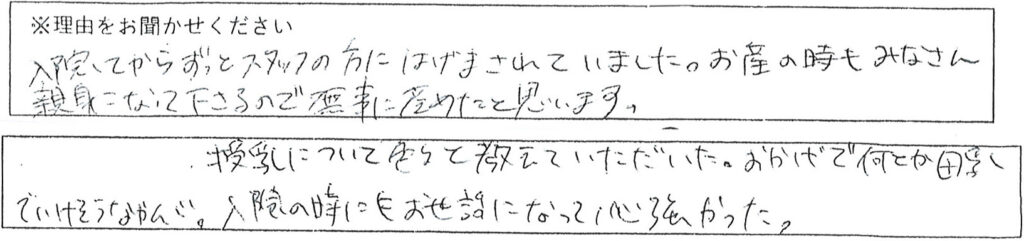 ※理由をお聞かせください
入院してからずっとスタッフの方にはげまされていました。お産の時もみなさん
親身になって下さるので無事に産めたと思います。
授乳について色々と教えていただいた。おかげで何とか母乳
でいけそうなかんじ。入院の時にもお世話になって心強かった。